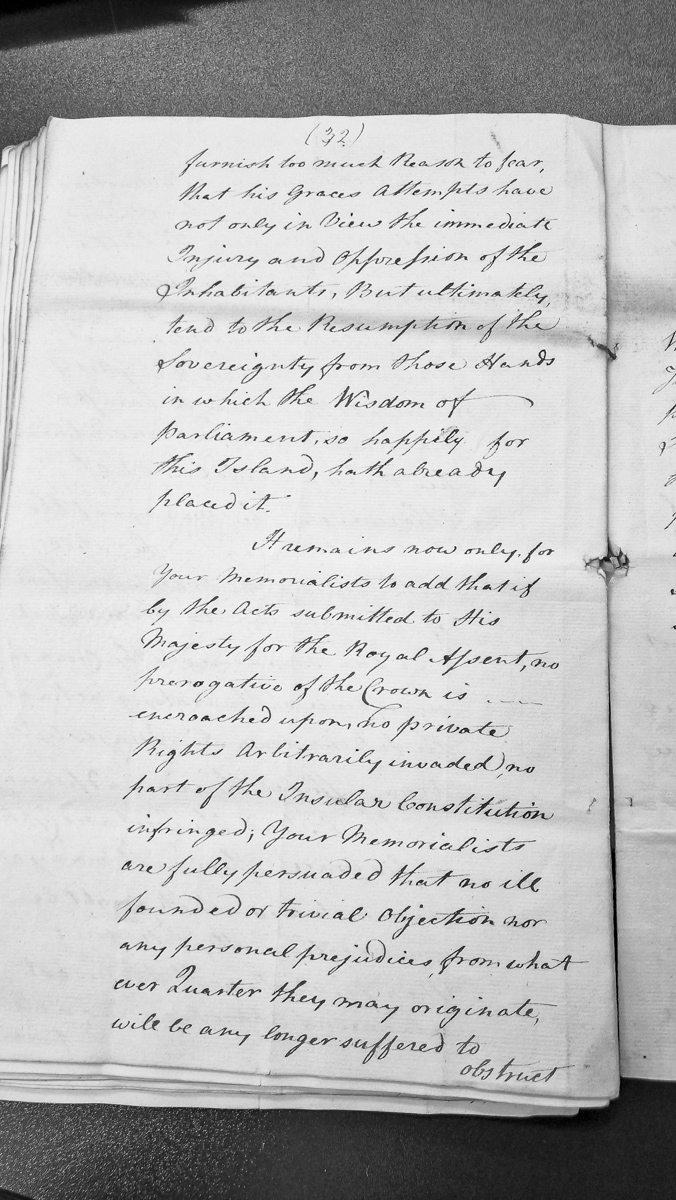 (32)
furnish too much Reason to fear,
that his Graces Attempts have
not only in View the immediate
Injury and Oppression of the
Inhabitants, But ultimately,
tend to the Resumption of the
Sovereignty from those Hands
in which the Wisdom of
Parliament, so happily for
this Island, hath already
placed it.
It remains now only, for
Your Memorialists to add that if
by the Acts submitted to His
Majesty for the Royal Assent, no
prerogative of the Crown is ----
encroached upon, no private
Rights Arbitrarily invaded, no
part of the Insular Constitution
infringed; Your Memorialists
are fully persuaded that no ill
founded or trivial Objection nor
any personal prejudices, from what
ever Quarter they may originate,
will be any longer suffered to
obstruct